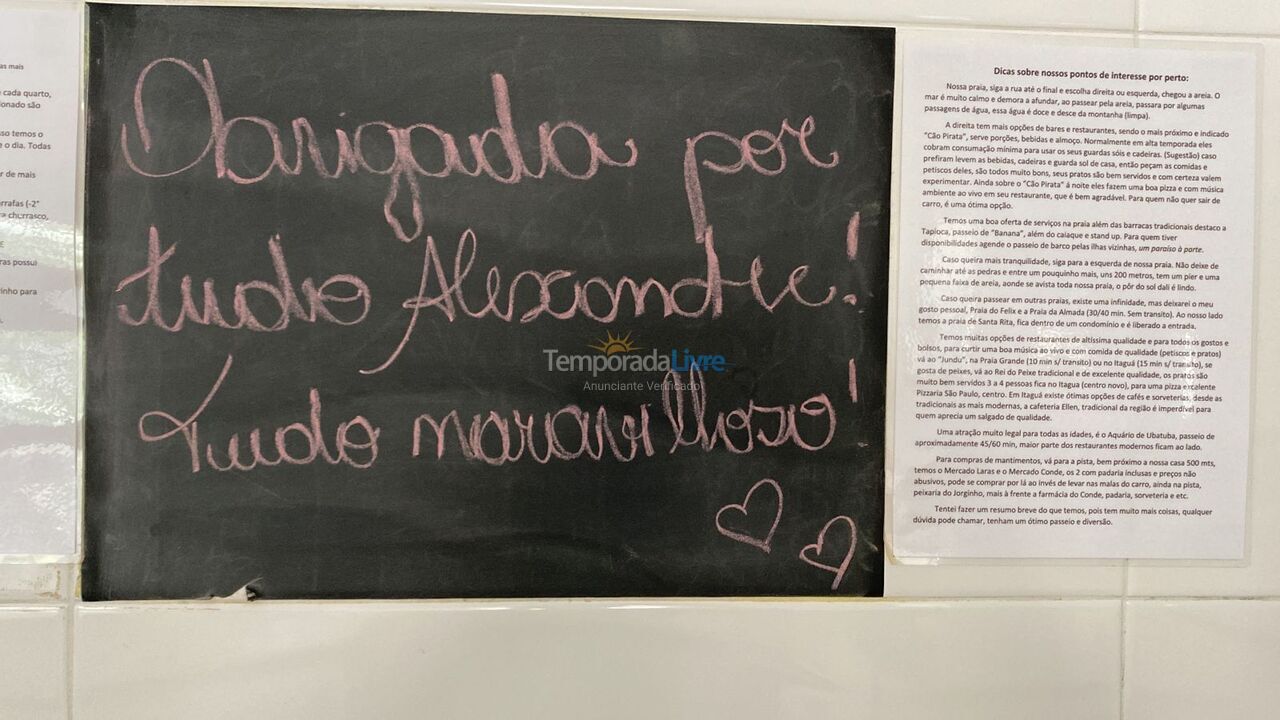 as mais
cada quarto,
ionado são
sso temos o
e o dia. Todas
r de mais
rrafas (-2°
a churrasco,
E
ras possui
inho para
Obrigada por
tudo Alexandre!
Tudo maravilhoso!
TemporadaLivre
Anunciante Verificado
Dicas sobre nossos pontos de interesse por perto:
Nossa praia, siga a rua até o final e escolha direita ou esquerda, chegou a areia. O
mar é muito calmo e demora a afundar, ao passear pela areia, passara por algumas
passagens de água, essa água é doce e desce da montanha (limpa).
A direita tem mais opções de bares e restaurantes, sendo o mais próximo e indicado
"Cão Pirata", serve porções, bebidas e almoço. Normalmente em alta temporada eles
cobram consumação mínima para usar os seus guardas sóis e cadeiras. (Sugestão) caso
prefiram levem as bebidas, cadeiras e guarda sol de casa, então peçam as comidas e
petiscos deles, são todos muito bons, seus pratos são bem servidos e com certeza valem
experimentar. Ainda sobre o "Cão Pirata" á noite eles fazem uma boa pizza e com música
ambiente ao vivo em seu restaurante, que é bem agradável. Para quem não quer sair de
carro, é uma ótima opção.
Temos uma boa oferta de serviços na praia além das barracas tradicionais destaco a
Tapioca, passeio de "Banana", além do caiaque e stand up. Para quem tiver
disponibilidades agende o passeio de barco pelas ilhas vizinhas, um paraíso à parte.
Caso queira mais tranquilidade, siga para a esquerda de nossa praia. Não deixe de
caminhar até as pedras e entre um pouquinho mais, uns 200 metros, tem um pier e uma
pequena faixa de areia, aonde se avista toda nossa praia, o pôr do sol dali é lindo.
Caso queira passear em outras praias, existe uma infinidade, mas deixarei o meu
gosto pessoal, Praia do Felix e a Praia da Almada (30/40 min. Sem transito). Ao nosso lado
temos a praia de Santa Rita, fica dentro de um condomínio e é liberado a entrada.
Temos muitas opções de restaurantes de altíssima qualidade e para todos os gostos e
bolsos, para curtir uma boa música ao vivo e com comida de qualidade (petiscos e pratos)
vá ao "Jundu", na Praia Grande (10 min s/ transito) ou no Itaguá (15 min s/ transito), se
gosta de peixes, vá ao Rei do Peixe tradicional e de excelente qualidade, os pratos são
muito bem servidos 3 a 4 pessoas fica no Itagua (centro novo), para uma pizza excelente
Pizzaria São Paulo, centro. Em Itaguá existe ótimas opções de cafés e sorveterias, desde as
tradicionais as mais modernas, a cafeteria Ellen, tradicional da região é imperdível para
quem aprecia um salgado de qualidade.
Uma atração muito legal para todas as idades, é o Aquário de Ubatuba, passeio de
aproximadamente 45/60 min, maior parte dos restaurantes modernos ficam ao lado.
Para compras de mantimentos, vá para a pista, bem próximo a nossa casa 500 mts,
temos o Mercado Laras e o Mercado Conde, os 2 com padaria inclusas e preços não
abusivos, pode se comprar por lá ao invés de levar nas malas do carro, ainda na pista,
peixaria do Jorginho, mais à frente a farmácia do Conde, padaria, sorveteria e etc.
Tentei fazer um resumo breve do que temos, pois tem muito mais coisas, qualquer
dúvida pode chamar, tenham um ótimo passeio e diversão.